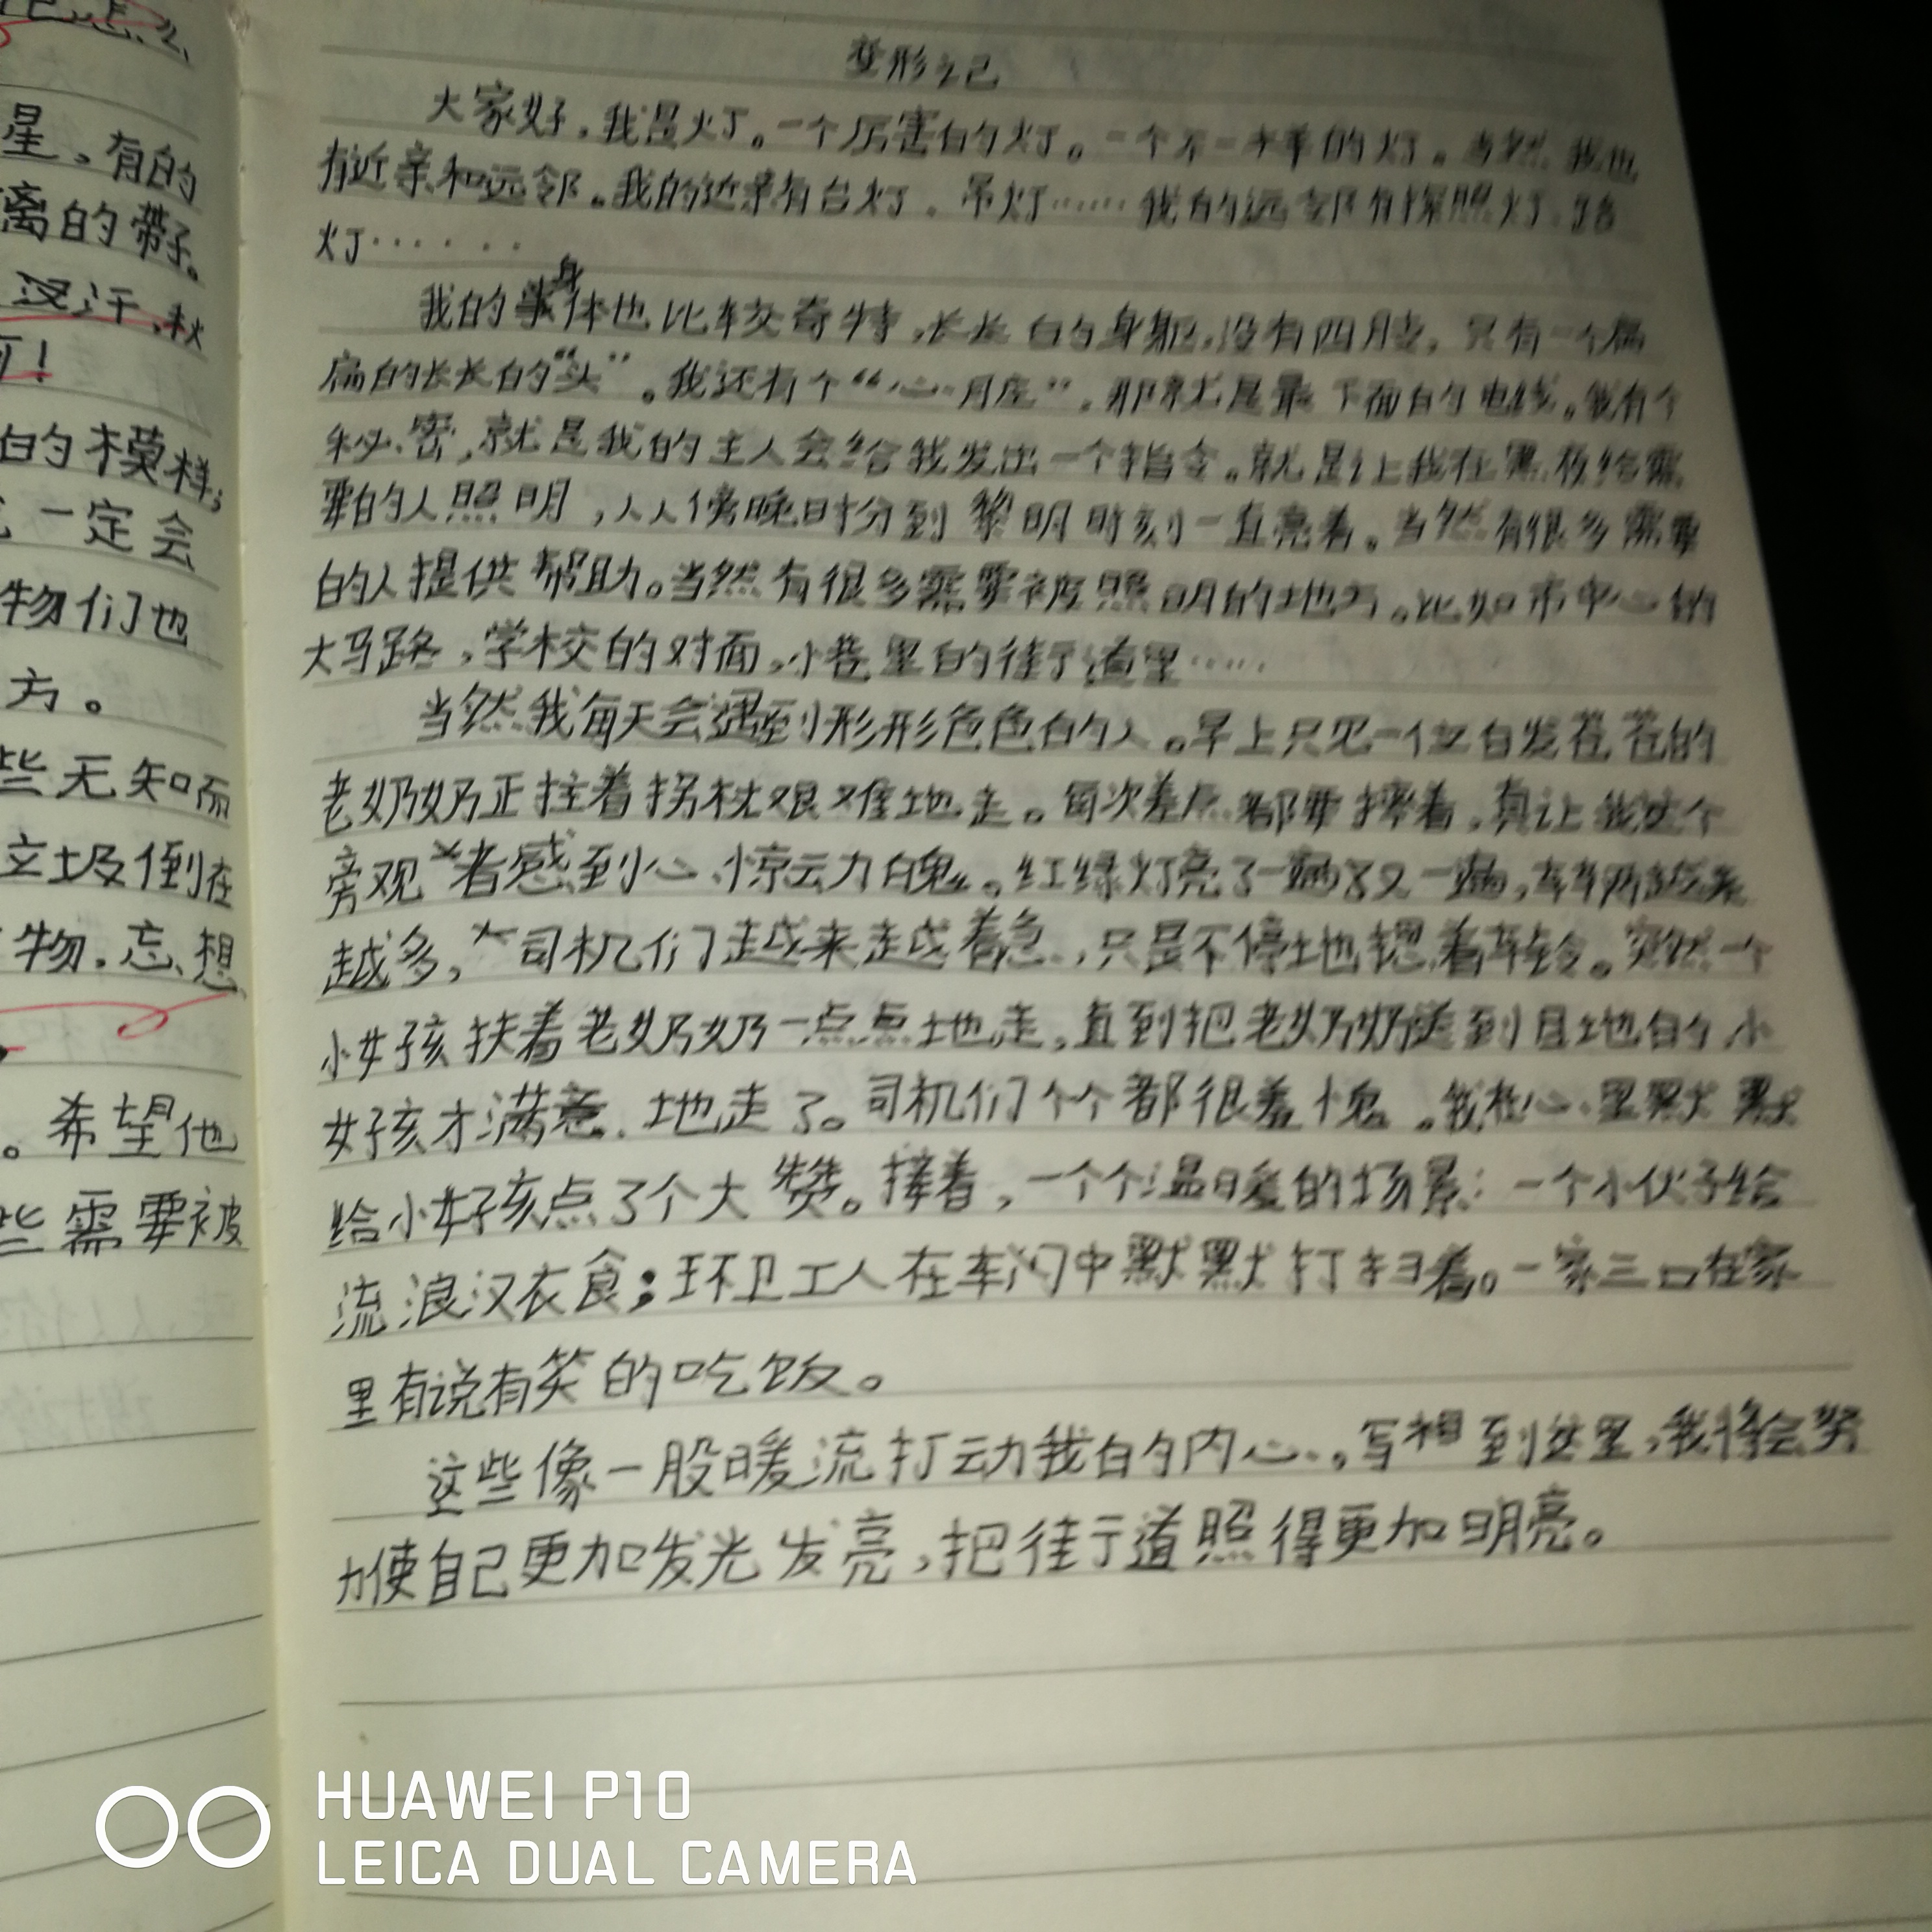 星，有的
离的带子。
汉汗，秋
可！
的模样；
一定会
物们也
方。
些无知而
垃圾倒在
物，忘、想
。希望他
些需要被
变形之己
大家好，我是灯。一个厉害的灯。一个不一样的灯。当然，我也
有近亲和远邻。我的近亲有台灯，吊灯……我的远邻有探照灯、路
灯……
我的身体也比较奇特，长长的身躯，没有四肢，只有一个扁
扁的长长的“头”。我还有个“心脏”，那就是最下面的电线。我有个
秘密，就是我的主人会给我发出一个指令。就是让我在黑夜给需
要的人照明，从傍晚时分到黎明时刻一直亮着。当然有很多需要
的人提供帮助。当然有很多需要被照明的地方。比如市中心的
大马路，学校的对面，小巷里的街道里……
当然我每天会遇到形形色色的人。早上只见一位白发苍苍的
老奶奶正拄着拐杖艰难地走。每次差点都要摔着，真让我这个
旁观者感到心惊动魄。红绿灯亮了一遍又一遍，车辆越来
越多，司机们越来越着急，只是不停地摁着车铃。突然一个
小女孩扶着老奶奶一点点地走，直到把老奶奶送到目地的小
女孩才满意地走了。司机们个个都很羞愧。我在心里默默
给小女孩点了个大赞。接着，一个个温暖的场景：一个小伙子给
流浪汉衣食；环卫工人在车闪中默默打扫着。一家三口在家
里有说有笑的吃饭。
这些像一股暖流打动我的内心，写想到这里，我将会努
力使自己更加发光发亮，把街道照得更加明亮。
HUAWEI P10
LEICA DUAL CAMERA